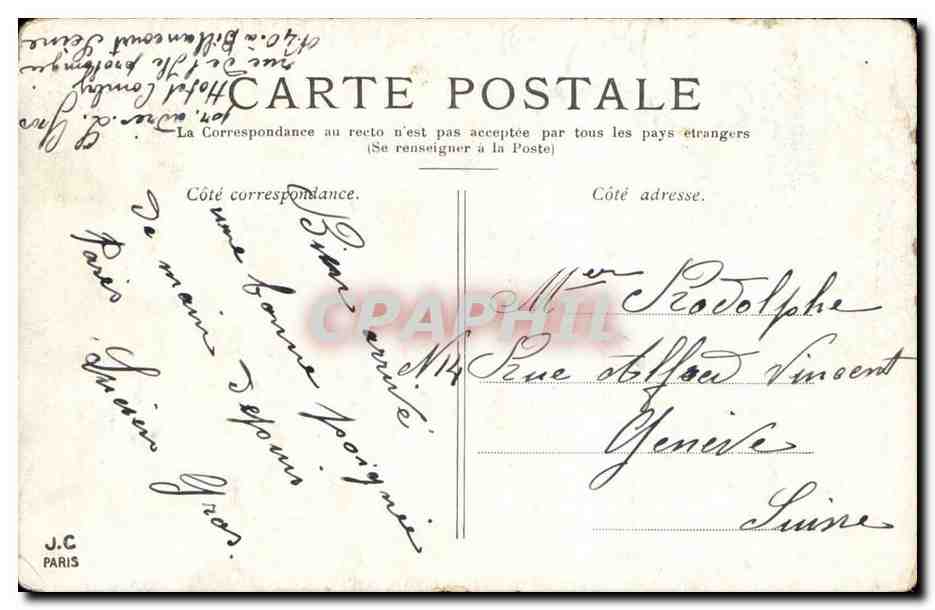 CARTE POSTALE
La Correspondance au recto n'est pas acceptée par tous les pays étrangers
(Se renseigner à la Poste)
Côté correspondance.
Côté adresse.
L. Gros
Hotel
rue de l'Ile
No 40. à Billancourt Seine
Bien arrivé
une bonne poignée
de main depuis
Paris
Lucien Gros.
Mr Rodolphe
N 14 Rue Alfred Vincent
Genève
Suisse
CPAPHIL
J.C
PARIS